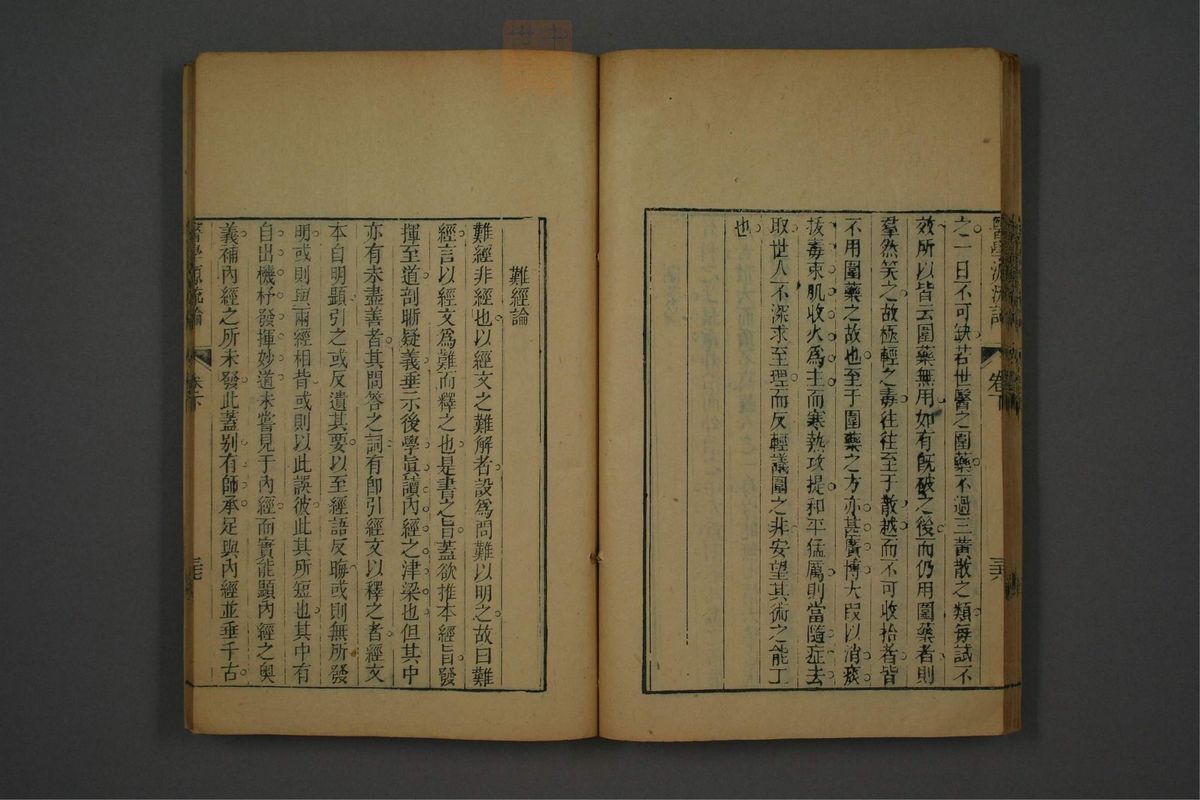 之一日不可缺若世醫之圍藥不過三黃散之類每試不
效所以皆云圍藥無用如有既破之後而仍用圍藥者則
羣然笑之故極輕之毒往往至于散越而不可收拾者皆
不用圍藥之故也至于圍藥之方亦甚廣博大段以消痰
拔毒束肌收火爲主而寒熱攻提和平猛厲則當隨症去
取世人不深求至理而反輕議圍之非安望其術之能工
也
醫學源流論 卷下 三六
難經論
難經非經也以經文之難解者設爲問難以明之故曰難
經言以經文爲難而釋之也是書之旨蓋欲推本經旨發
揮至道剖晰疑義垂示後學眞讀內經之津梁也但其中
亦有未盡善者其問答之詞有卽引經文以釋之者經文
本自明顯引之或反遺其要以至經語反晦或則無所發
明或則與兩經相背或則以此誤彼此其所短也其中有
自出機杼發揮妙道未嘗見于內經而實能顯內經之奥
義補內經之所未發此蓋别有師承足與內經並垂千古
醫學源流論 卷下 三七